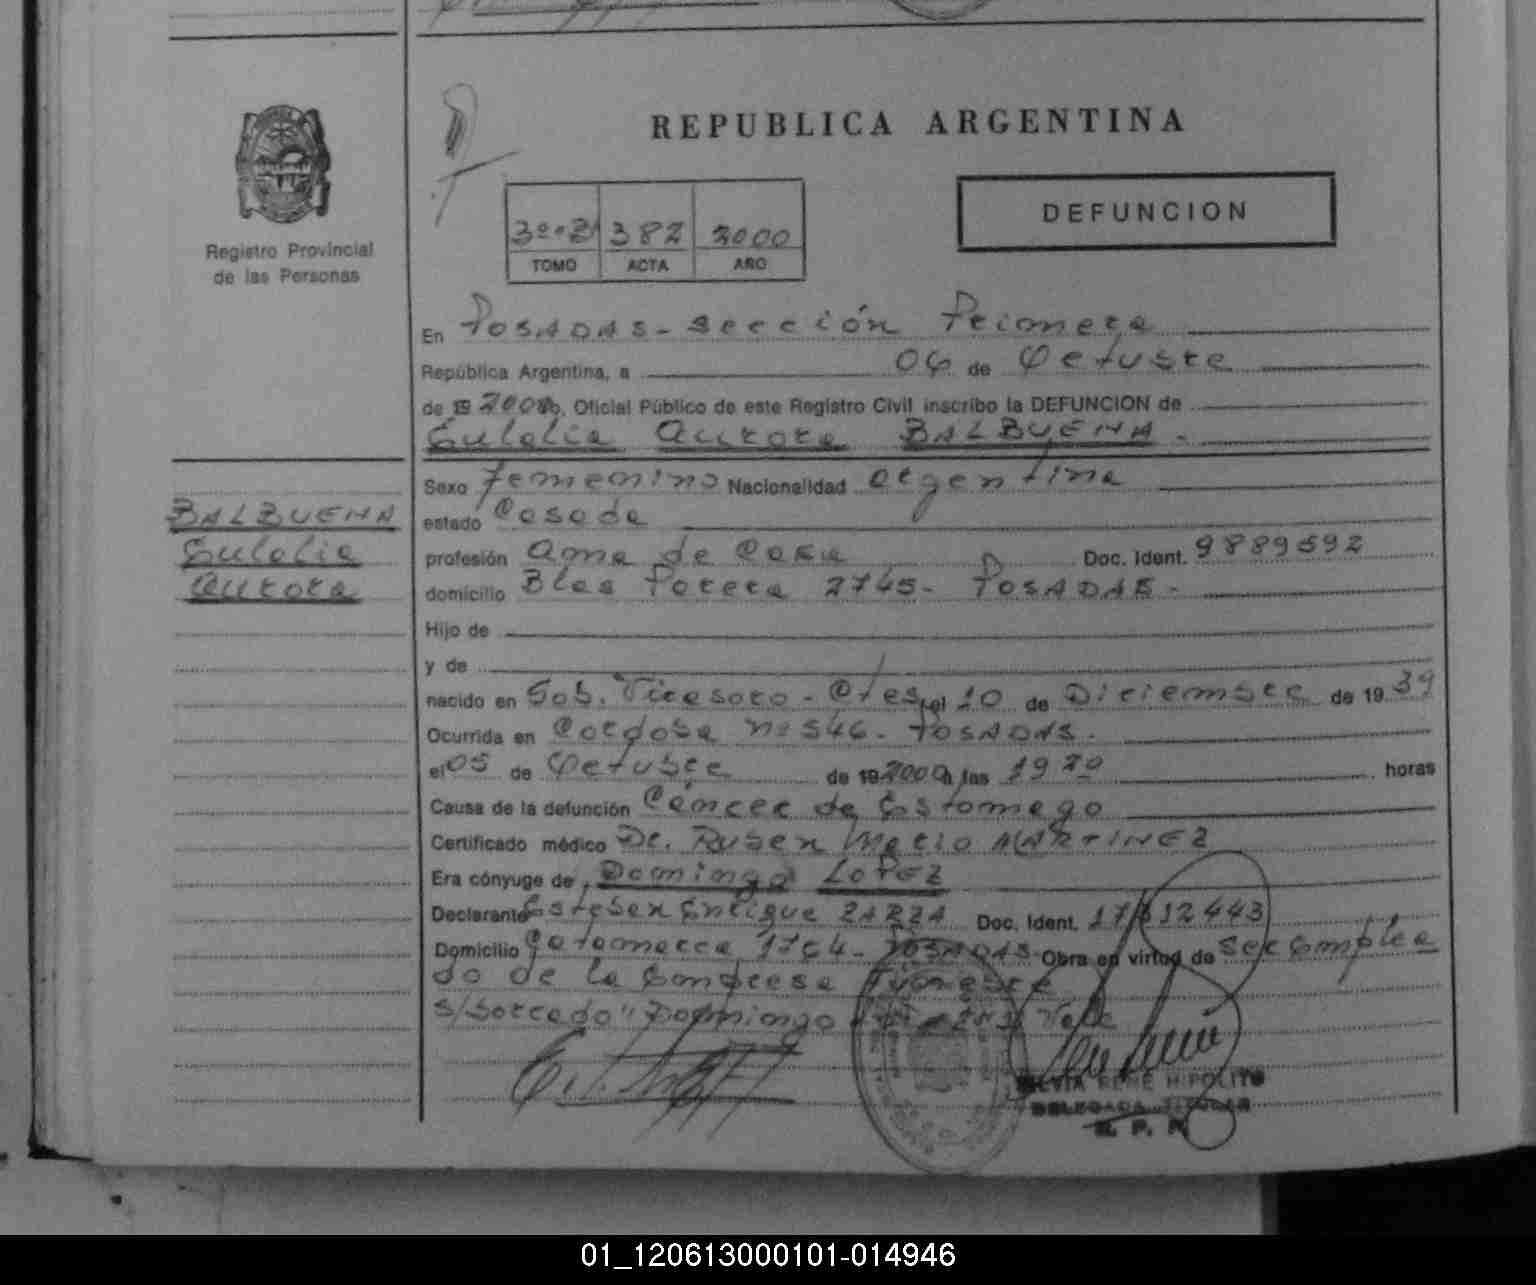 REPUBLICA ARGENTINA
Registro Provincial
de las Personas
382 2000
TOMO ACTA AÑO
DEFUNCION
En POSADAS - Sección Primera
República Argentina, a 06 de Octubre
de 19 2000 yo, Oficial Público de este Registro Civil inscribo la DEFUNCION de
Eulalia Aurora BALBUENA.
BALBUENA
Eulalia
Aurora
Sexo femenino Nacionalidad argentina
estado Casada
profesión ama de Casa Doc. Ident. 9889592
domicilio Blas Parera 2745 - POSADAS -
Hijo de
y de
nacido en Gob. Virasoro - Ctes, el 10 de Diciembre de 19 39
Ocurrida en Cordoba nº 546 - POSADAS.
el 05 de Octubre de 19 2000 a las 19 20 horas
Causa de la defunción Cáncer de Estomago
Certificado médico Dr. Ruben Mario MARTINEZ
Era cónyuge de Domingo LOPEZ
Declarante Esteban Enrique ZARZA Doc. Ident. 17 812443
Domicilio Catamarca 1764 - POSADAS Obra en virtud de ser Emplea
do de la Empresa Funebre
S/Borrado "Domingo Vale
SILVIA RENE HIPOLITO
DELEGADA TITULAR
R. P. P.
01_120613000101-014946